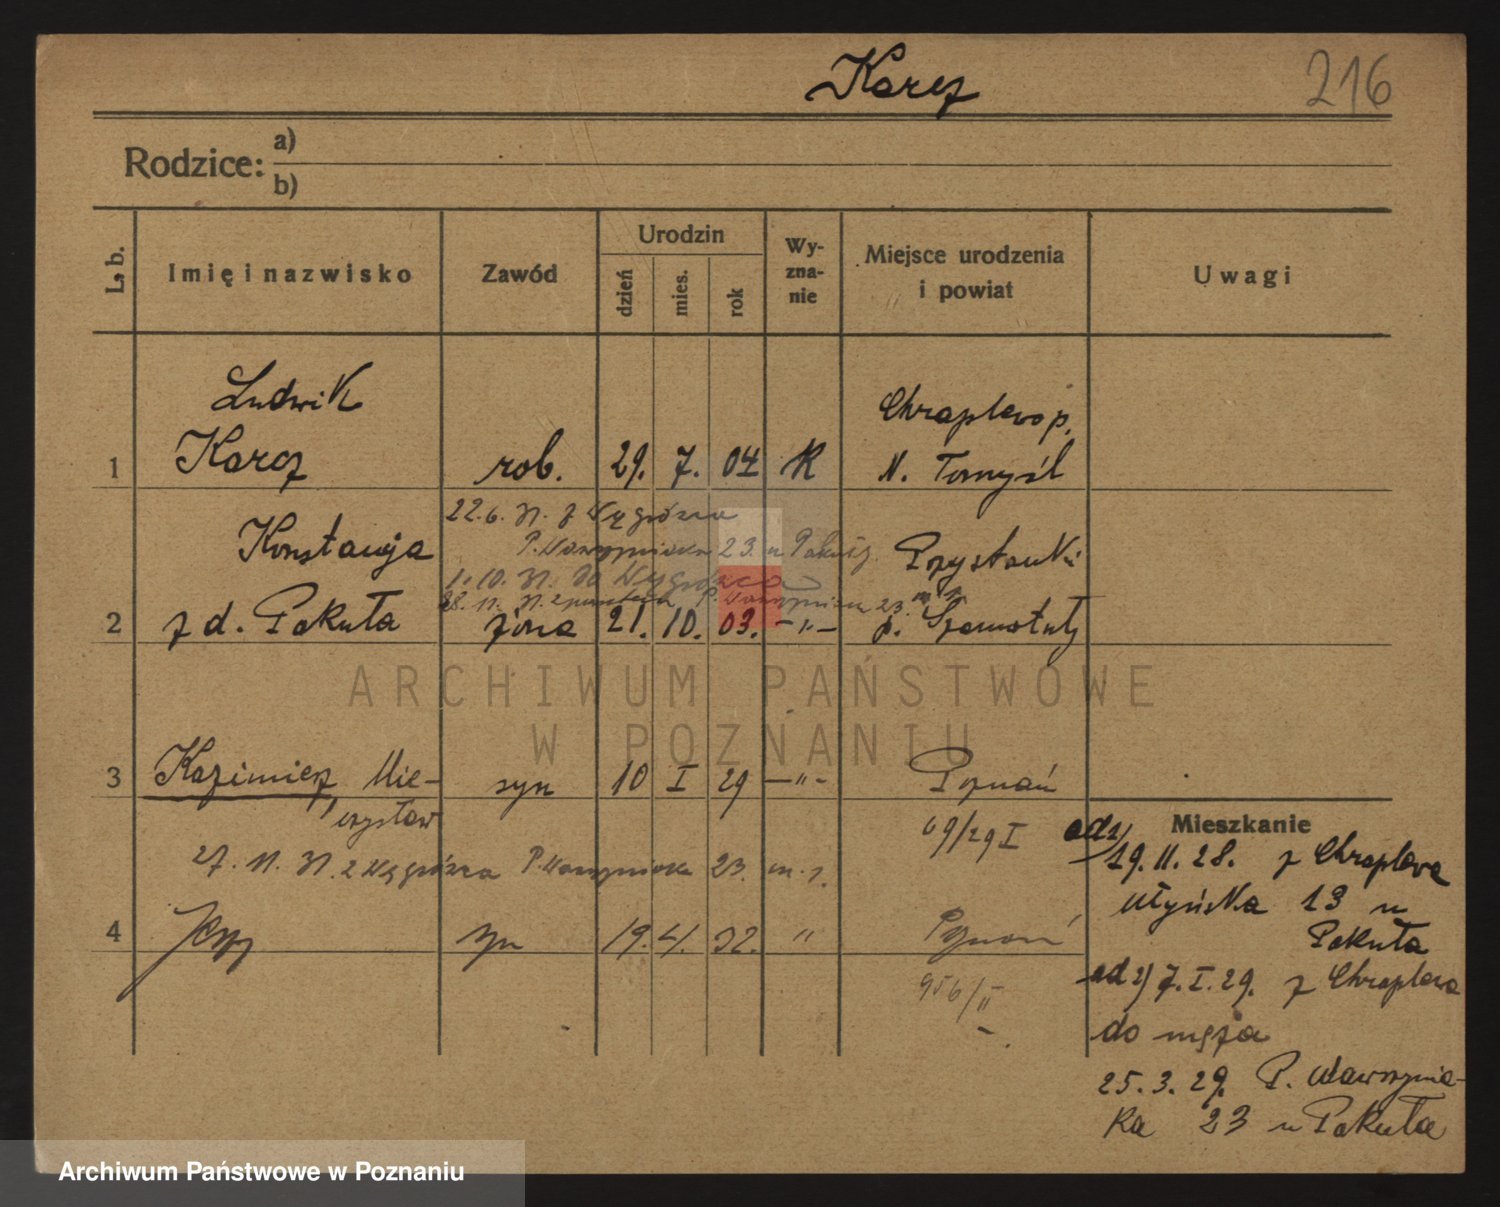 Karcz
216
Rodzice: a)
b)
L. b.
Imię i nazwisko
Zawód
Urodzin
dzień
mies.
rok
Wy-
zna-
nie
Miejsce urodzenia
i powiat
Uwagi
Ludwik
Chraplewo p.
1 Karcz rob. 29. 7. 04 K N. Tomyśl
22.6. 31. z Węgrówca
Konstancja
P. Wawrzyniaka 23. u Pakuły
Przystanki
1.10. 31. do Węgrówca
28. 11. 31. z powrotem P. Wawrzyniaka 23.
2 z d. Pakuła żona 21. 10. 03. -"- p. Szamotuły
3 Kazimierz Mie- syn 10 I 29 -"- Poznań
czysław
69/29 I
27. 11. 31. z Węgrówca P. Wawrzyniaka 23. m. 1.
4 Jerzy syn 19. 4. 32. " Poznań
956/II
Mieszkanie
ad 1)
19. 11. 28. z Chraplewa
13 u
Pakuła
ad 2) 7. I. 29. z Chraplewa
do męża
25. 3. 29. P. Wawrzynia-
ka 23 u Pakuła
ARCHIWUM PAŃSTWOWE
W POZNANIU
Archiwum Państwowe w Poznaniu